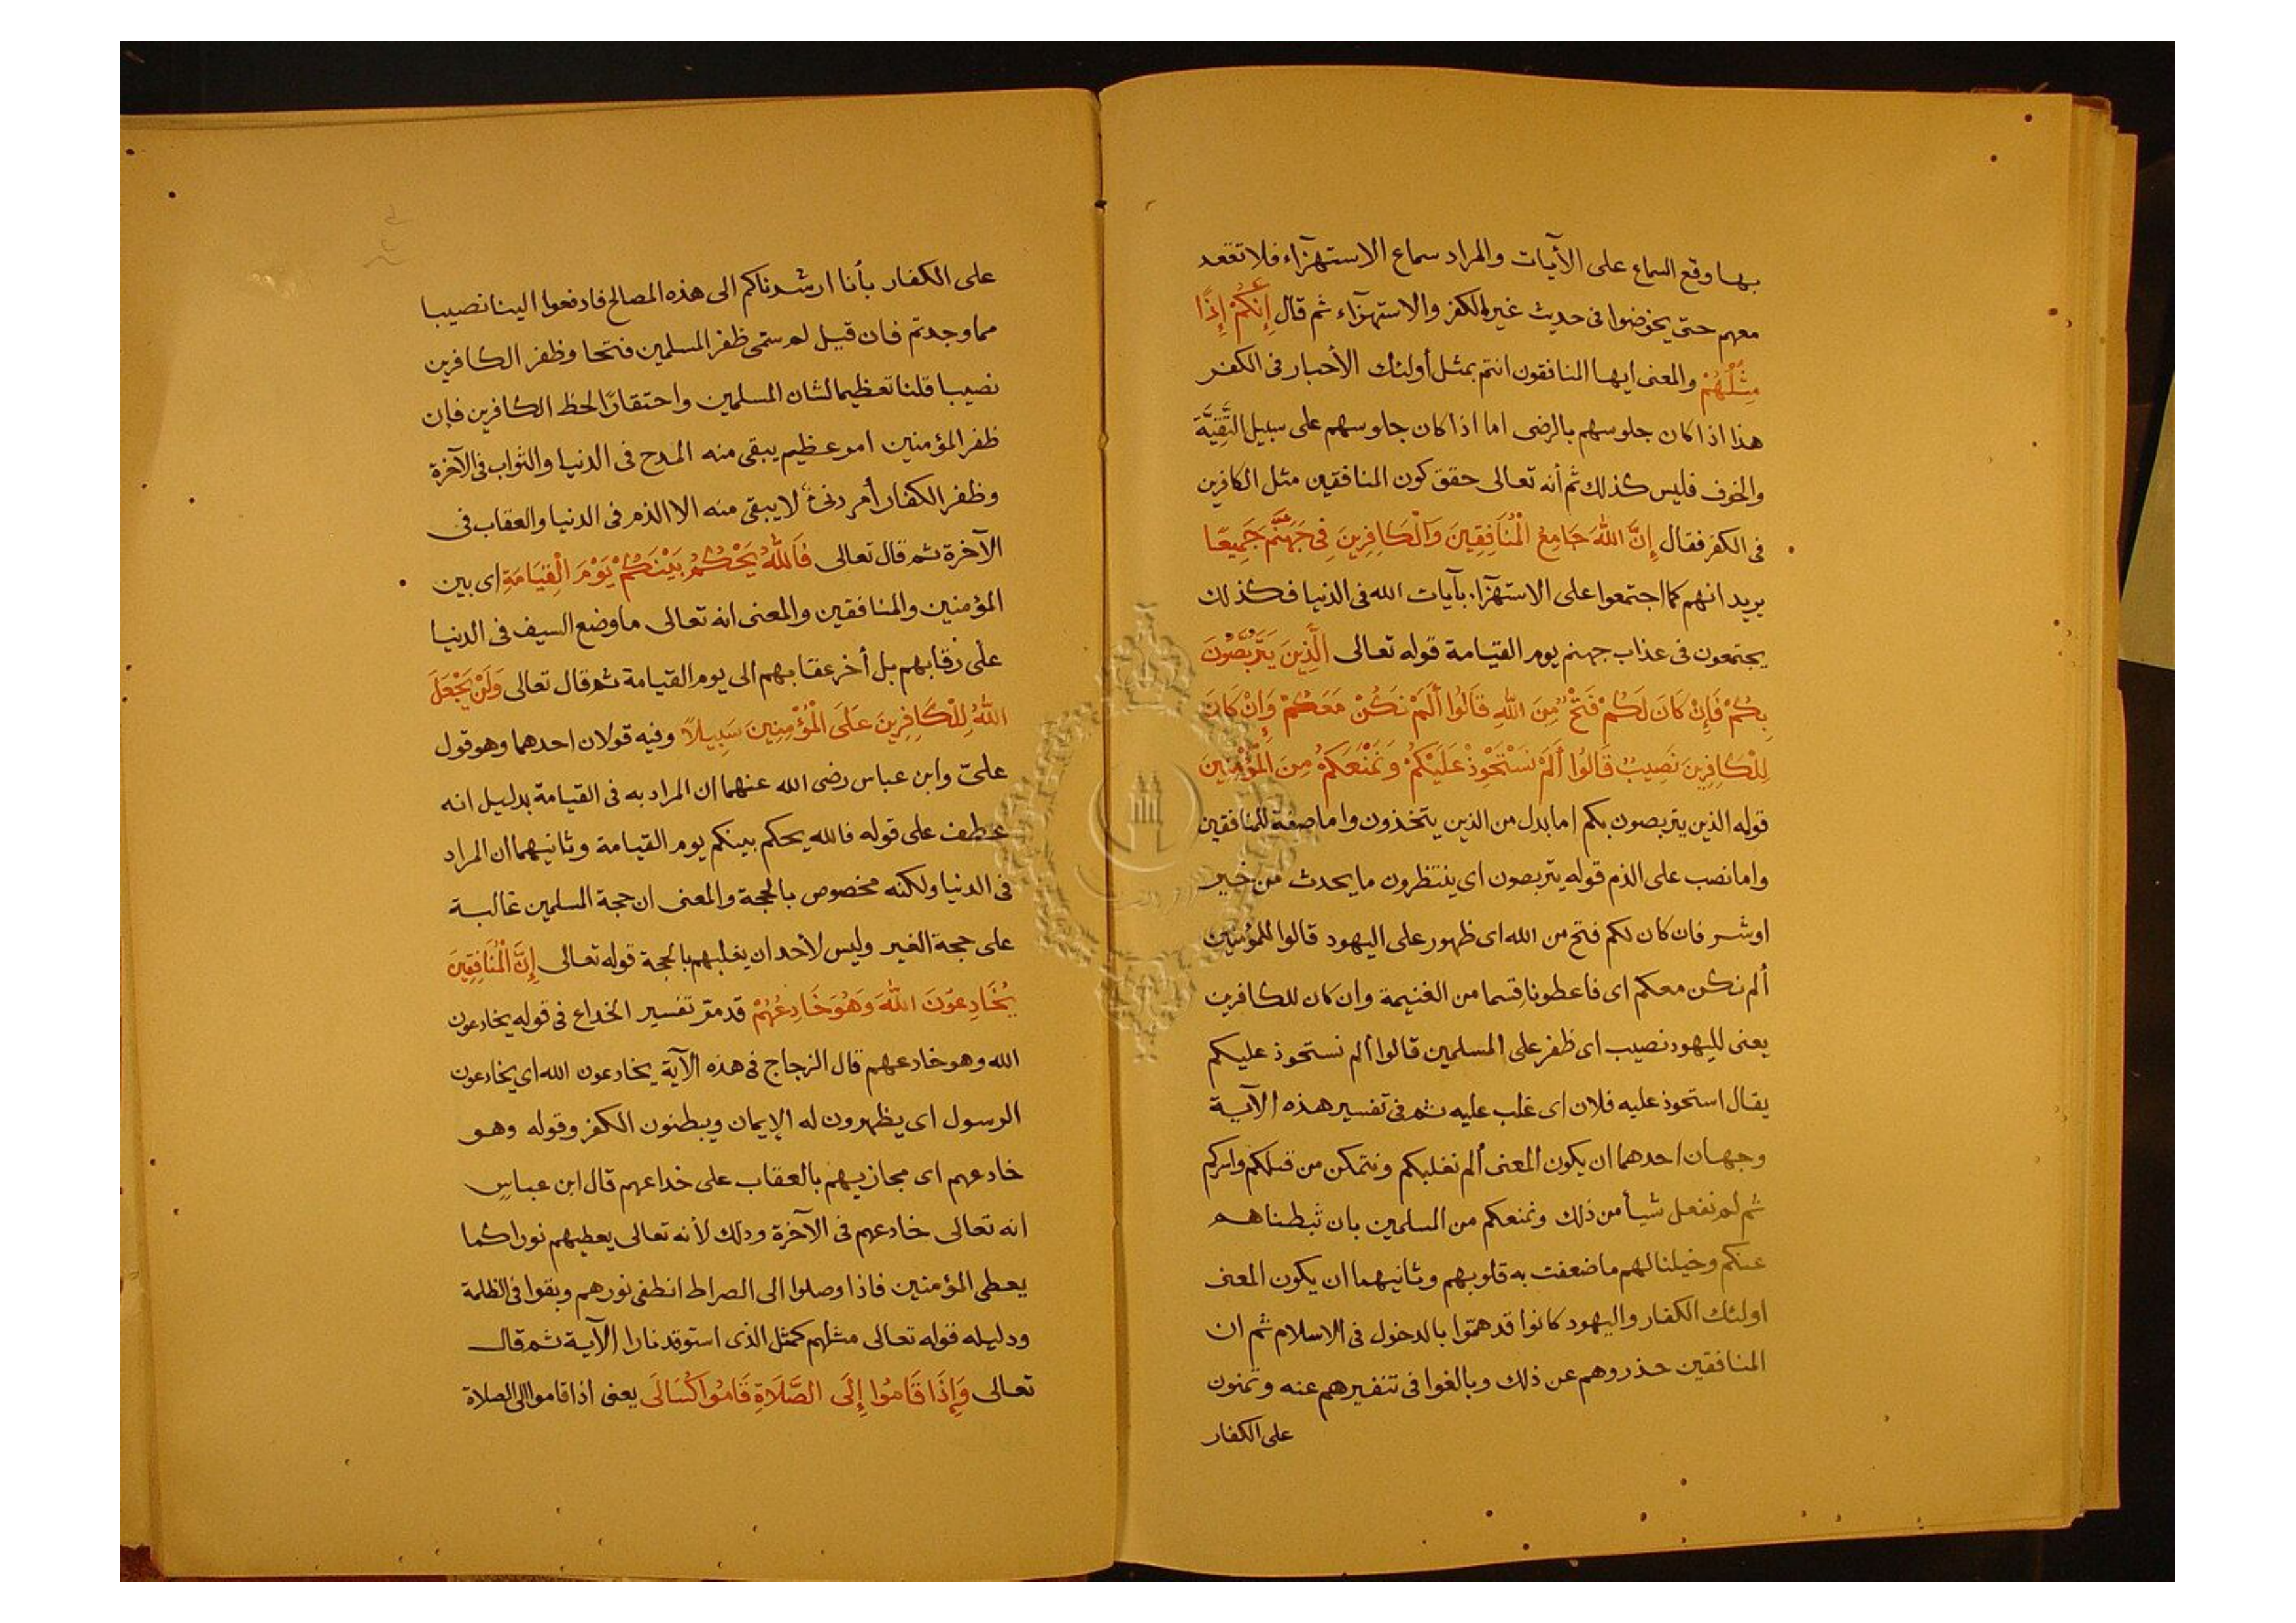 بها وقع السماع على الأيات والمراد سماع الاستهزآء فلا تقعد
معهم حتى يخوضوا فى حديث غير الكفر والاستهزآء ثم قال إِنَّكُمْ إِذًا
مِثْلُهُمْ والمعنى ايها المنافقون انتم بمثل أولئك الأحبار فى الكفر
هذا اذا كان جلوسهم بالرضى اما اذا كان جلوسهم على سبيل التَّقِيَّة
والخوف فليس كذلك ثم أنه تعالى حقق كون المنافقين مثل الكافرين
فى الكفر فقال إِنَّ اللهَ جَامِعُ الْمُنَافِقِينَ وَالْكَافِرِينَ فِى جَهَنَّمَ جَمِيعًا
يريد انهم كما اجتمعوا على الاستهزآء بآيات الله فى الدنيا فكذلك
يجتمعون فى عذاب جهنم يوم القيامة قوله تعالى الَّذِينَ يَتَرَبَّصُونَ
بِكُمْ فَإِنْ كَانَ لَكُمْ فَتْحٌ مِنَ اللهِ قَالُوا أَلَمْ نَكُنْ مَعَكُمْ وَإِنْ كَانَ
لِلْكَافِرِينَ نَصِيبٌ قَالُوا أَلَمْ نَسْتَحْوِذْ عَلَيْكُمْ وَنَمْنَعَكُمْ مِنَ الْمُؤْمِنِين
قوله الذين يتربصون بكم اما بدل من الذين يتخذون واما صفة للمنافقين
واما نصب على الذم قوله يتربصون اى ينتظرون ما يحدث من خير
او شر فان كان لكم فتح من الله اى ظهور على اليهود قالوا للمؤمنين
ألم نكن معكم اى فاعطونا قسما من الغنيمة وان كان للكافرين
يعنى لليهود نصيب اى ظفر على المسلمين قالوا ألم نستحوذ عليكم
يقال استحوذ عليه فلان اى غلب عليه ثم فى تفسير هذه الآية
وجهان احدهما ان يكون المعنى ألم نغلبكم ونتمكن من قتلكم واسركم
ثم لم نفعل شيأ من ذلك ونمنعكم من المسلمين بان ثبطناهم
عنكم وخيلنا لهم ما ضعفت به قلوبهم وثانيهما ان يكون المعنى
اولئك الكفار واليهود كانوا قد همّوا بالدخول فى الاسلام ثم ان
المنافقين حذروهم عن ذلك وبالغوا فى تنفيرهم عنه وتمنون
على الكفار
على الكفار بأنا ارشدناكم الى هذه المصالح فادفعوا الينا نصيبا
مما وجدتم فان قيل لم ستمى ظفر المسلمين فتحا وظفر الكافرين
نصيبا قلنا تعظيما لشان المسلمين واحتقارًا لحظ الكافرين فإن
ظفر المؤمنين امر عظيم يبقى منه المدح فى الدنيا والثواب فى الآخرة
وظفر الكفار أمر دنىء لا يبقى منه الا الذم فى الدنيا والعقاب فى
الآخرة ثم قال تعالى فَاللهُ يَحْكُمُ بَيْنَكُمْ يَوْمَ الْقِيَامَةِ اى بين
المؤمنين والمنافقين والمعنى انه تعالى ما وضع السيف فى الدنيا
على رقابهم بل أخر عقابهم الى يوم القيامة ثم قال تعالى وَلَنْ يَجْعَلَ
اللهُ لِلْكَافِرِينَ عَلَى الْمُؤْمِنِينَ سَبِيلاً وفيه قولان احدهما وهو قول
علىّ وابن عباس رضى الله عنهما ان المراد به فى القيامة بدليل انه
عطف على قوله فالله يحكم بينكم يوم القيامة وثانيهما ان المراد
فى الدنيا ولكنه مخصوص بالحجة والمعنى ان حجة المسلمين غالبة
على حجة الغير وليس لأحد ان يغلبهم بالحجة قوله تعالى إِنَّ الْمُنَافِقِينَ
يُخَادِعُونَ اللهَ وَهُوَ خَادِعُهُمْ قد مرّ تفسير الخداع فى قوله يخادعون
الله وهو خادعهم قال الزجاج فى هذه الآية يخادعون الله اى يخادعون
الرسول اى يظهرون له الإيمان ويبطنون الكفر وقوله وهو
خادعهم اى مجازيهم بالعقاب على خداعهم قال ابن عباسٍ
انه تعالى خادعهم فى الآخرة وذلك لأنه تعالى يعطيهم نورا كما
يعطى المؤمنين فاذا وصلوا الى الصراط انطفى نورهم وبقوا فى الظلمة
ودليله قوله تعالى مثلهم كمثل الذى استوقد نارا الآية ثم قال
تعالى وَإِذَا قَامُوا إِلَى الصَّلَاةِ قَامُوا كُسَالَى يعنى اذا قاموا الى الصلاة